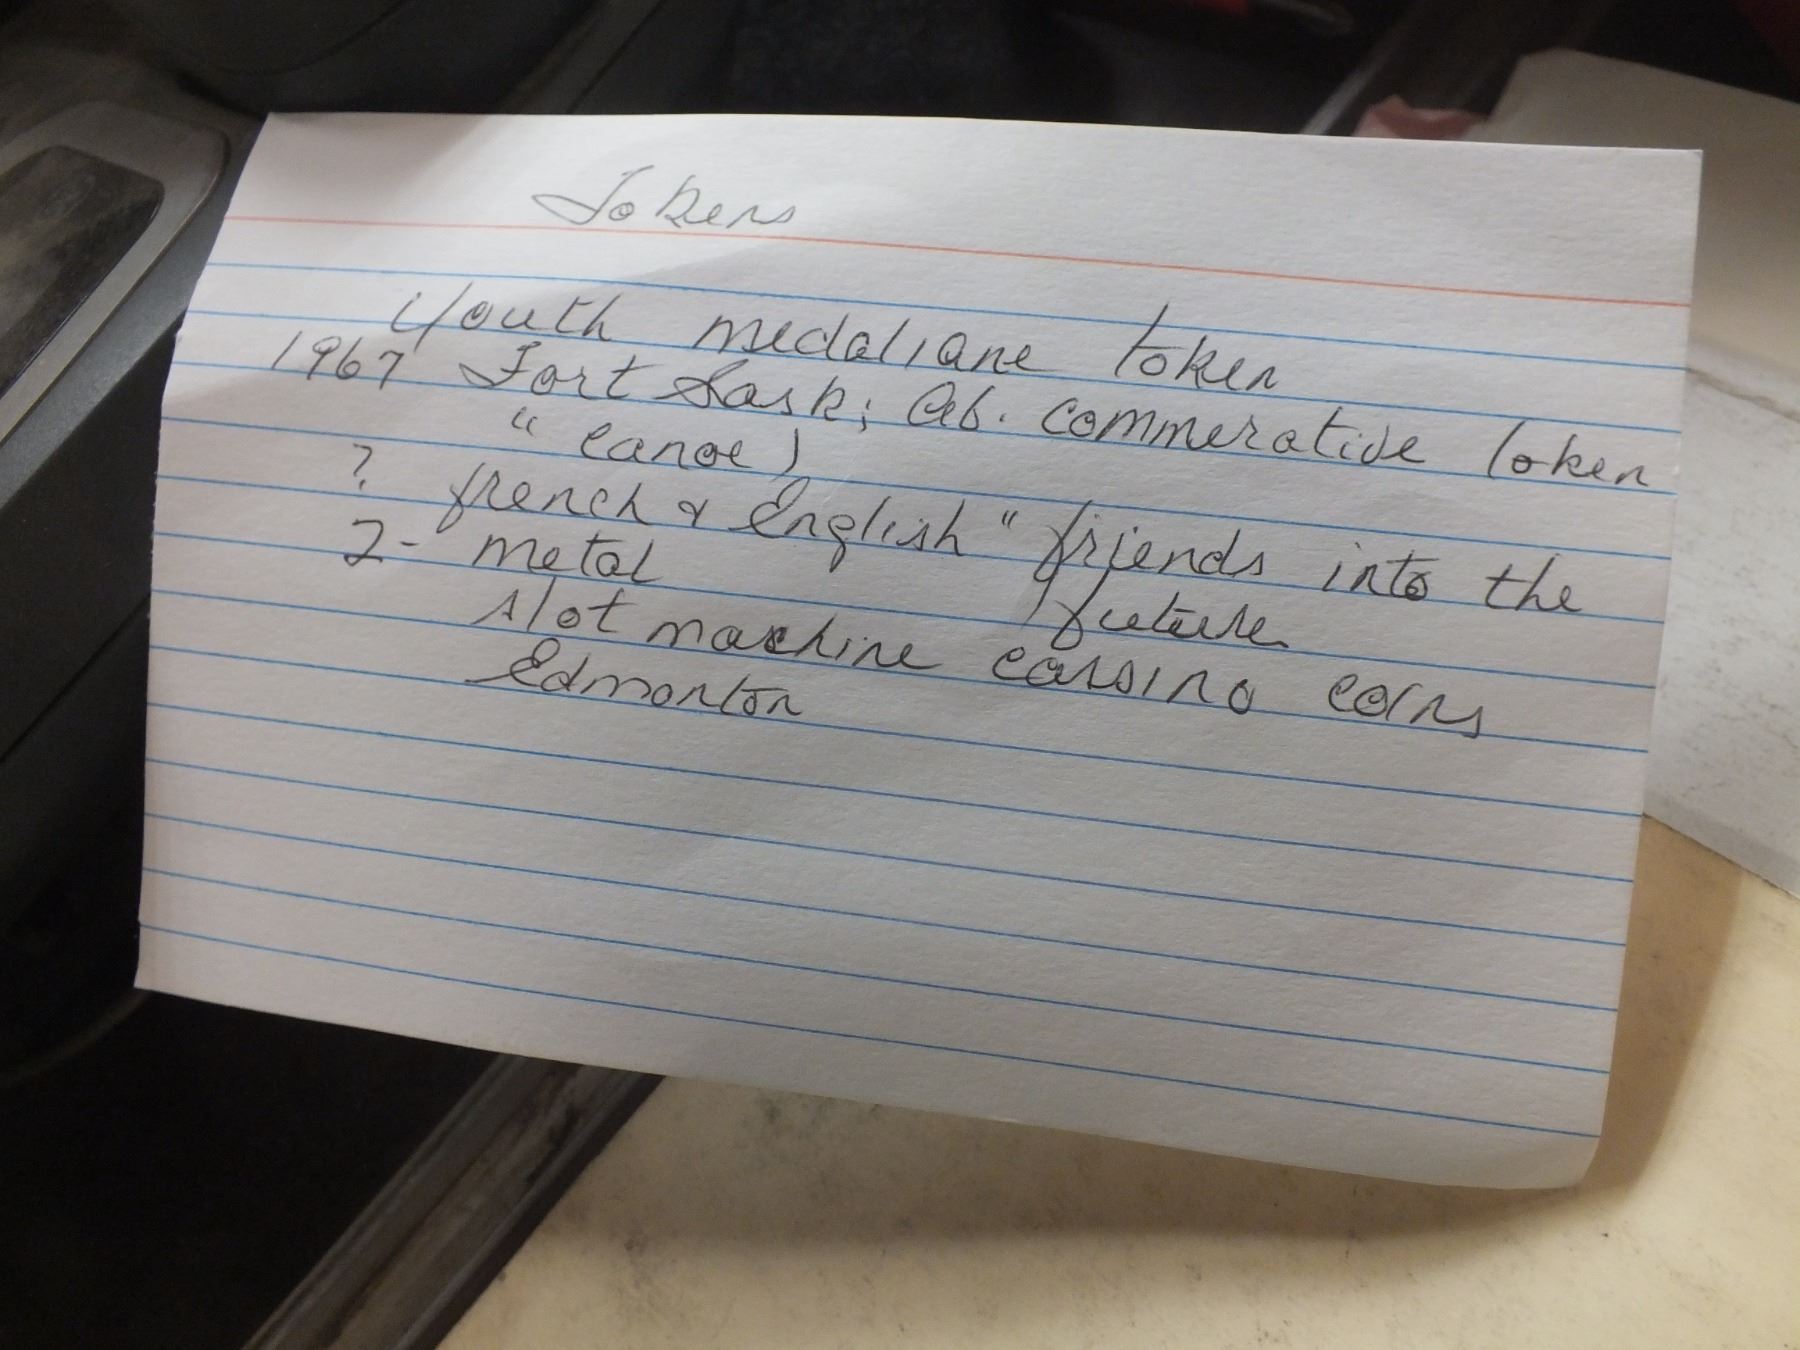 Tokens
Youth medaliane token
1967 Fort Sask; Ab. commerative token
" canoe)
? french & English " friends into the
future
2- metal
slot machine cassino coins
Edmonton